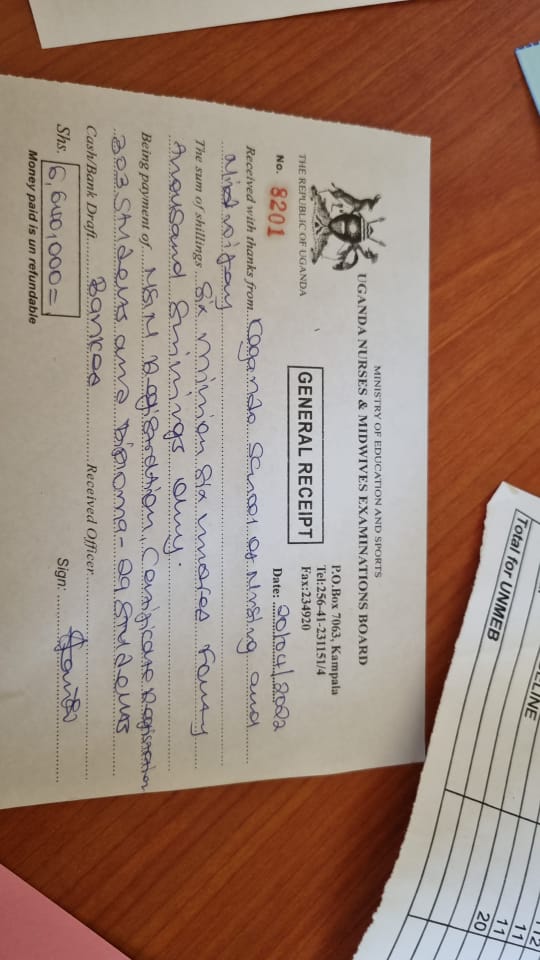 MINISTRY OF EDUCATION AND SPORTS
UGANDA NURSES & MIDWIVES EXAMINATIONS BOARD
THE REPUBLIC OF UGANDA
P.O.Box 7063, Kampala
Tel:256-41-231151/4
Fax:234920
GENERAL RECEIPT
No. 8201
Date: 20/04/2022
Received with thanks from Kagando School of Nursing and
Midwifery
The sum of shillings Six million six hundred Fourty
thousand Shillings only.
Being payment of NSN Registration, Certificate Registration
203 Students and Diploma - 29 Students
Cash/Bank Draft Banked Received Officer
Shs. 6,640,000= Sign:
Money paid is un refundable
Total for UNMEB
11
11
20